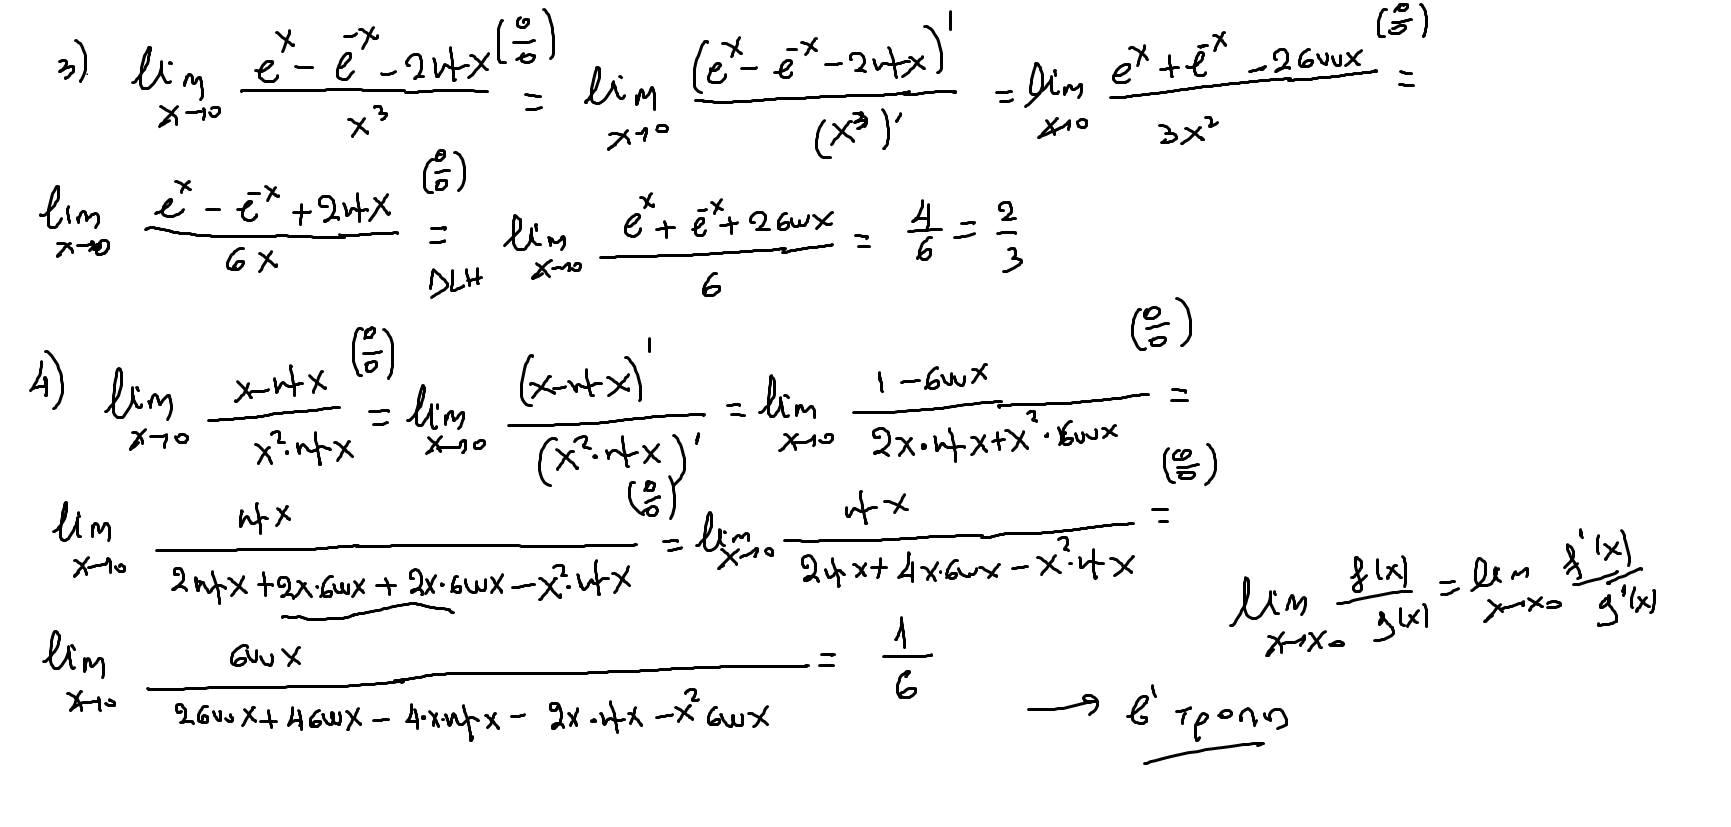 3) lim x→0 (e^x − e^−x − 2ημx)/x³ (0/0) = lim x→0 (e^x − e^−x − 2ημx)'/(x³)' = lim x→0 (e^x + e^−x − 2συνx)/3x² (0/0) =
lim x→0 (e^x − e^−x + 2ημx)/6x (0/0) = DLH lim x→0 (e^x + e^−x + 2συνx)/6 = 4/6 = 2/3
4) lim x→0 (x−ημx)/(x²·ημx) (0/0) = lim x→0 (x−ημx)'/(x²·ημx)' = lim x→0 (1−συνx)/(2x·ημx+x²·συνx) (0/0) =
lim x→0 ημx/(2ημx+2x·συνx+2x·συνx−x²·ημx) (0/0) = lim x→0 ημx/(2ημx+4x·συνx−x²·ημx) (0/0) =
lim x→x₀ f(x)/g(x) = lim x→x₀ f'(x)/g'(x)
lim x→0 συνx/(2συνx+4συνx−4·x·ημx−2x·ημx−x²συνx) = 1/6
→ β' τροπη